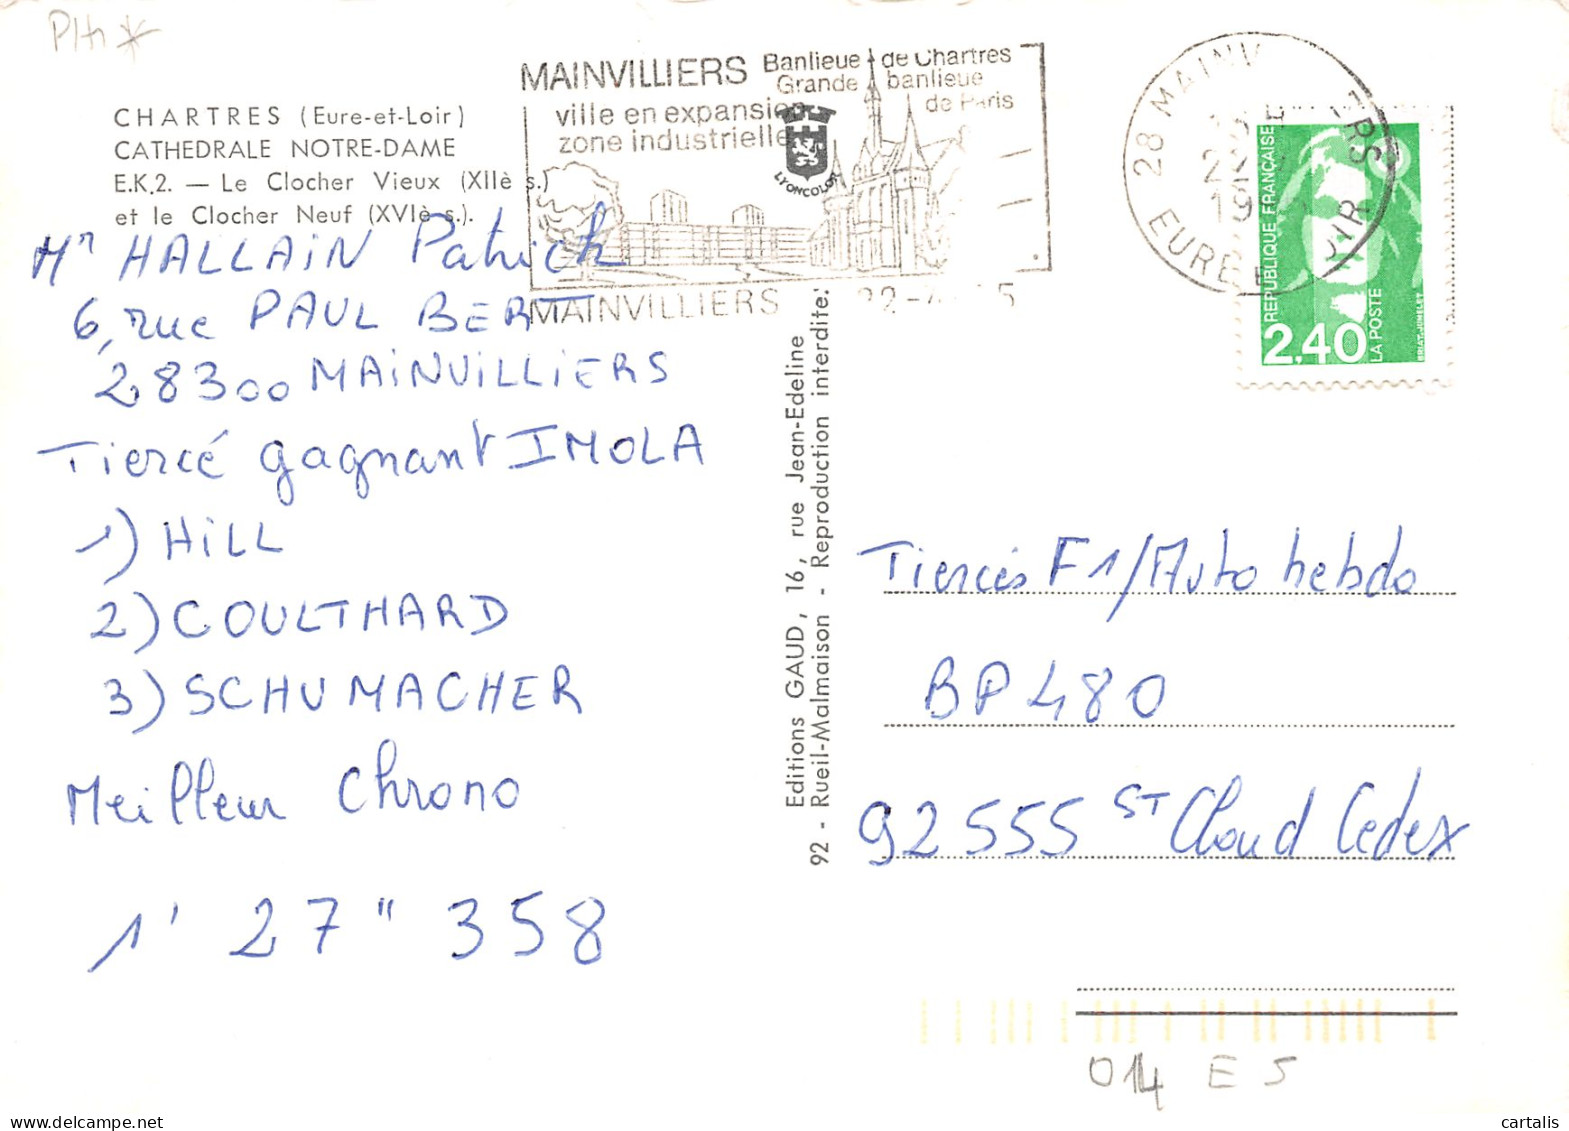 PHn *
CHARTRES (Eure-et-Loir)
CATHEDRALE NOTRE-DAME
E.K.2. — Le Clocher Vieux (XIIè s.)
et le Clocher Neuf (XVIè s.).
MAINVILLIERS
ville en expansion
zone industrielle
Banlieue de Chartres
Grande banlieue
de Paris
LYONCOLOR
MAINVILLIERS
28 MAINV
EURE E
OIR
RÉPUBLIQUE FRANÇAISE
2,40
LA POSTE
BRIAT-JUMELET
Mr HALLAiN Patrick
6, rue PAUL BERT
28300 MAiNViLLiERS
Tiercé gagnant IMOLA
1) HiLL
2) COULTHARD
3) SCHUMACHER
Meilleur Chrono
1' 27" 358
Editions GAUD, 16, rue Jean-Edeline
92 - Rueil-Malmaison - Reproduction interdite.
Tiercés F1/Auto hebdo
BP 480
92555 ST Cloud Cedex
014 E 5
cartalis